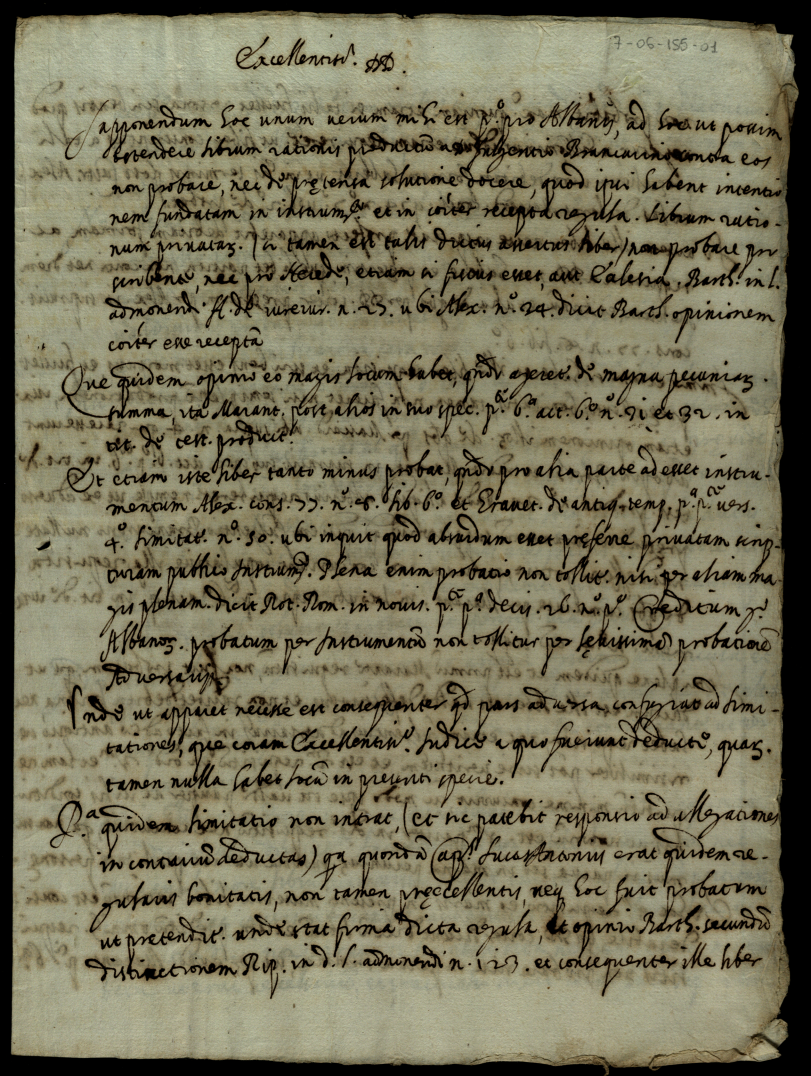 7-06-185-01
Excellentis.^e DD.
Supponendum hoc unum verum mihi est p.^o pro Albanis, ad hoc ut possim
ostendere librum rationis productũ contra eos
non probare, nec de pretensa solutione docere, quod ipsi habent intentio
nem fundatam in instrum.^to et in coiter recepta regula. Librum ratio-
num privatarz. (si tamen est talis dictus assertus liber) non probare pro
scribente, nec pro herede, etiam si sutus esset, aut Ecclesia. Barth. in l.
admonendi ff. de iureiur. n. 23. ubi Alex. n.^o 24. dicit Barth. opinionem
coiter esse receptã
Que quidem opinio eo magis locum habet, qñdo ageret. de magna pecuniarz.
summa, ita Marant. post alios in suo spec. p. 6.^a act. 6.^o n.^o 31 et 32. in
tit. de test. product.
Et etiam iste liber tanto minus probat, qñdo pro alia parte adesset instru-
mentum Alex. cons. 77. n.^o 8. lib. 6.^o et Cravet. de antiq. temp. p.^a p.^te vers.
4.^o limitat. n.^o 50. ubi inquit quod absurdum esset preferre privatam scrip-
turam publico Instrum.^to. Plena enim probatio non tollit. nisi per aliam ma-
gis plenam. dicit Rot. Rom. in novis. p.^te p.^a decis. 26. n.^o p.^o Creditum
Albanorz. probatum per Instrumentũ non tollitur per levissimã probationẽ
Adversarior
Inde ut apparet necesse est consequenter qd pars adversa confugiat ad limi-
tationes, que coram Excellentis.^e Iudice a quo fuerunt deducte, quarz.
tamen nulla habet locũ in presenti specie.
P.^a quidem limitatio non intrat, (et sic patebit responsio ad allegationes
in contrariũ deductas) qa quondã Lucas Antonius erat quidem re-
gularis bonitatis, non tamen preccellentis, neq hoc fuit probatum
ut pretendit. unde stat firma dicta regula, et opinio Barth. secundũ
distinctionem Rip. in d. l. admonendi n. 123. et consequenter ille liber